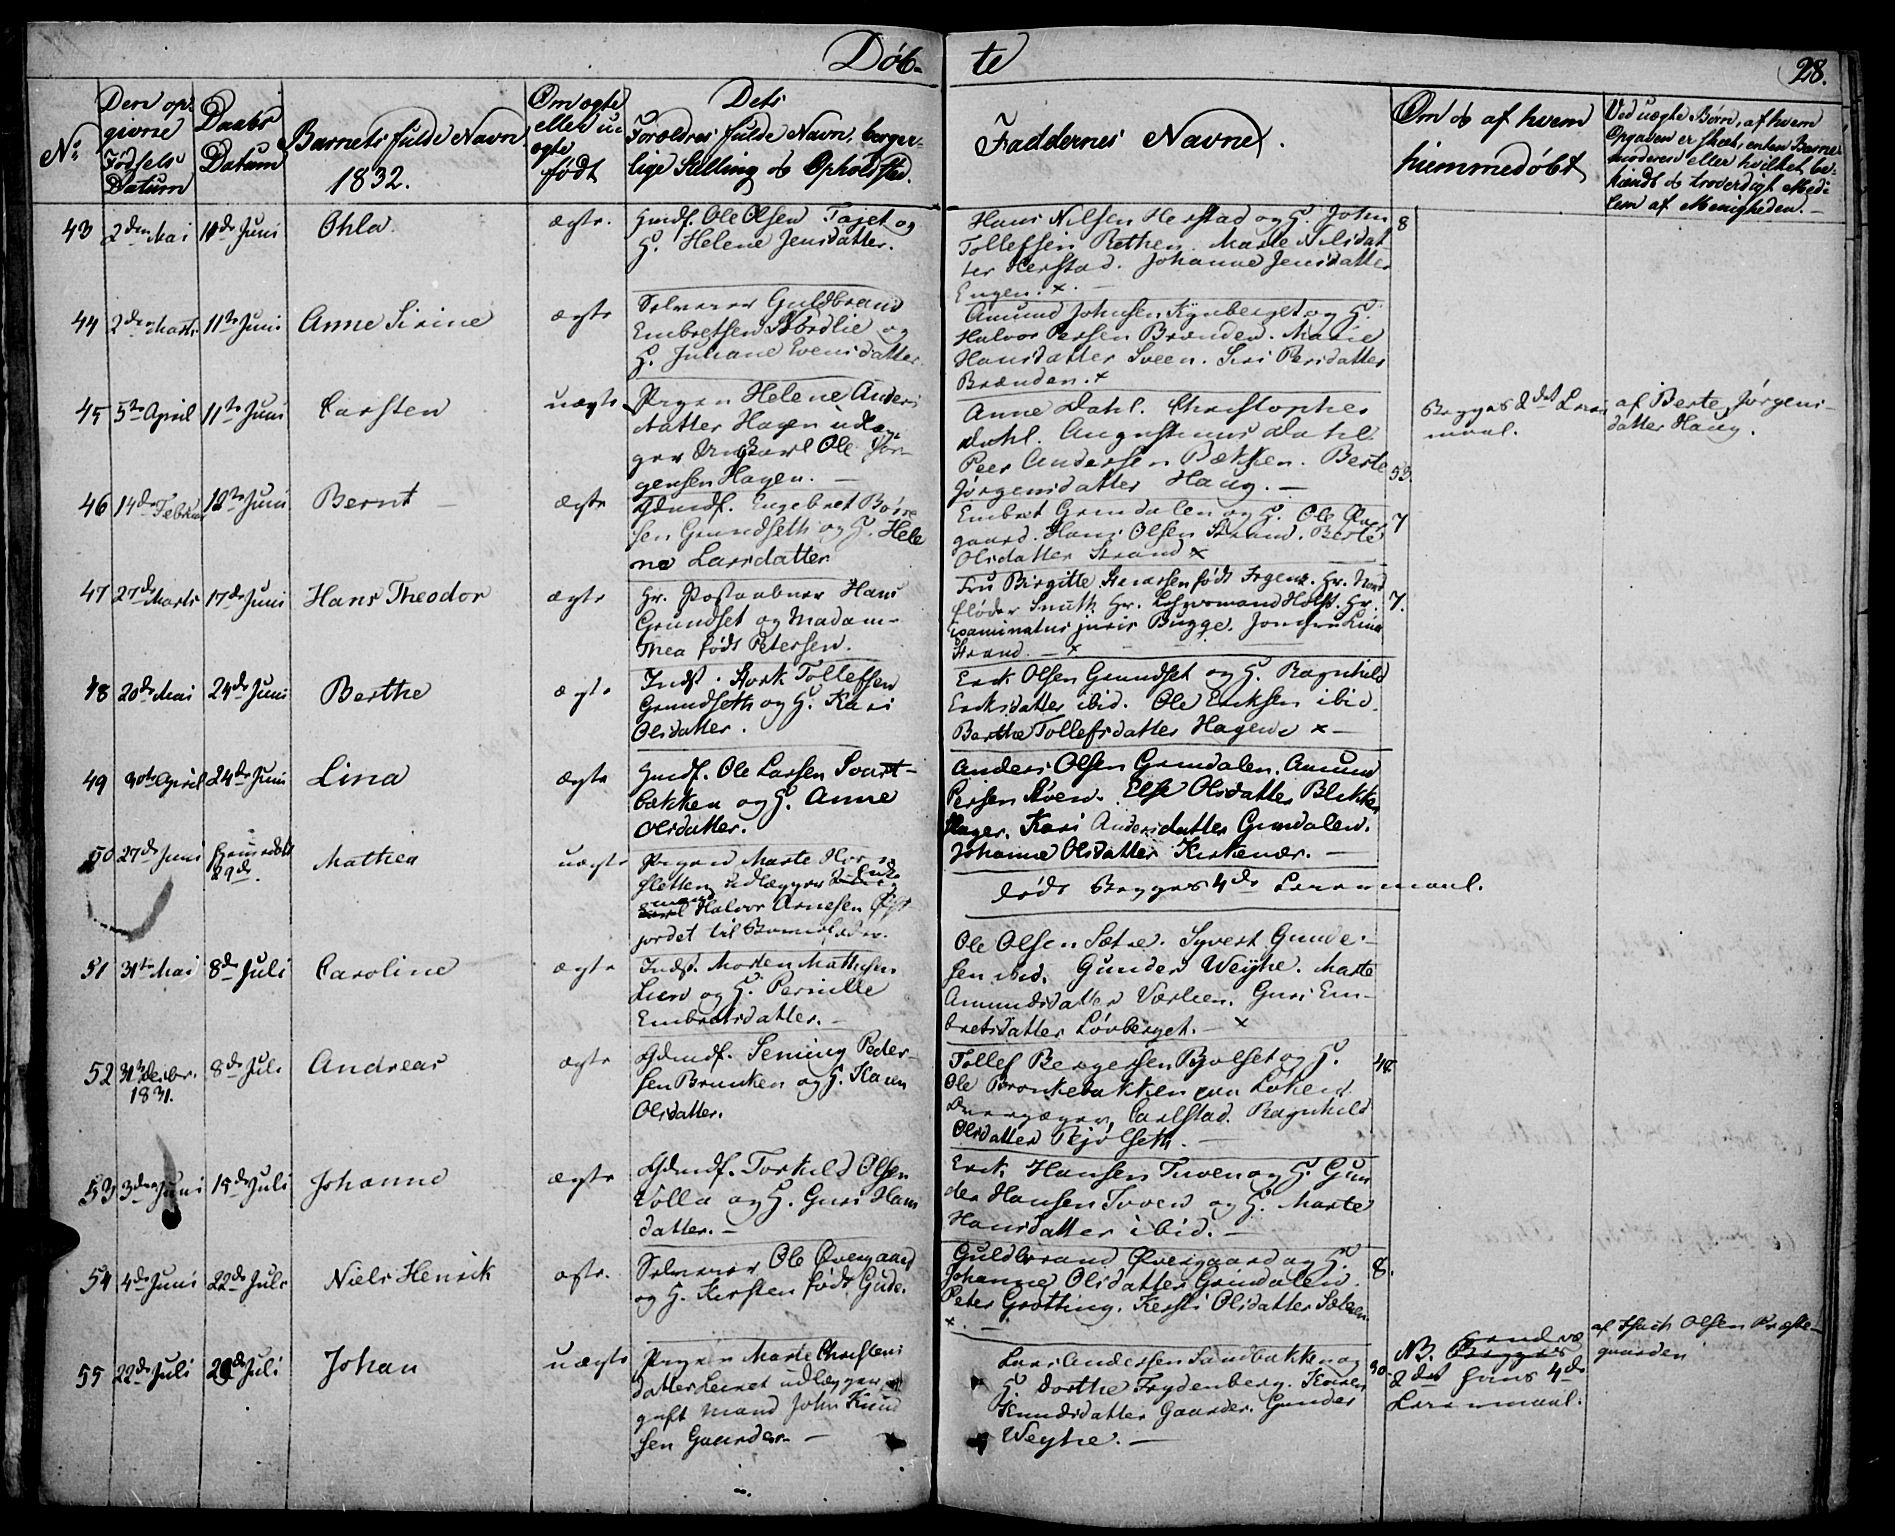 Døb-
te
28.
No
Den op-
givne
Fødsels
Datum
Daabs
Datum
Barnets fulde Navn
1832.
Om ægte
eller u-
ægte
født
Dets
Forældres fulde Navn, borger-
lige Stilling og Opholdsted.
Faddernes Navne.
Om og af hvem
hiemmedøbt
Ved uægte Børn, af hvem
Opgaven er skeet, enten Barne-
moderen eller hvilket be-
kiendt og troverdigt Med-
lem af Menigheden.
43
2den Mai
10de Juni
Ohla.
ægte.
Gmdf. Ole Olsen Fajet og
H. Helene Jensdatter.
Hans Nilsen Herstad og H. John
Tollefsen Rethen. Marte Nilsdat-
ter Herstad. Johanne Jensdatter
Engen. x.
8
44
2den Marts
11te Juni
Anne Sirine
ægte
Selveier Guldbrand
Embretsen Nordlie og
H. Juliane Evensdatter
Amund Johnsen Kynberget og H.
Halvor Persen Brænden. Marie
Hansdatter Sveen. Siri Persdatter
Brænden. x
45
5te April
11te Juni
Carsten
uægte
Pigen Helene Anders
datter Hagen udlæg-
ger Ungkarl Ole Jør-
gensen Hagen.
Anne Dahl. Christopher
Dahl. Augustinus Dahl.
Peer Andersen Bækken. Berte
Jørgensdatter Haug.
53
Begges 2det Leier
maal.
af Berte Jørgens-
datter Haug.
46
14de Februar
12te Juni
Bernt
ægte
Gdmdf. Engebret Børre
sen Grundseth og H. Hele
ne Larsdatter
Embret Grindalen og H. Ole Aa-
gaard. Hans Olsen Strand. Berte
Olsdatter Strand x
7
47
27de Marts
17de Juni
Hans Theodor
ægte
Hr. Postaabner Hans
Grundset og Madam
Thea født Petersen.
Fru Birgitte født Irgens. Hr.
Smith Hr. Holst. Hr.
Examinatus juris Bugge. Jomfru Lina
Strand. x
7.
48
20de Mai
24de Juni
Berthe
ægte
Indst. Stork Tollefsen
Grundseth og H. Kari
Olsdatter.
Erik Olsen Grundset og H. Ragnhild
Eriksdatter ibid. Ole Eriksen ibid.
Berthe Tollefsdatter Hagen. x
49
30te April
24de Juni
Lina
ægte
Gmdf. Ole Larsen Svart-
bækken og H. Anne
Olsdatter.
Anders Olsen Grindalen. Amund
Persen Støen. Else Olsdatter Blikker
hager. Kari Andersdatter Grindalen.
Johanne Olsdatter Kirkenær.
50
27de Juni
Hiemmedøbt
29de.
Mathea
uægte
Pigen Marte Hor
sletten udlægger Enke
mand Halvor Arnesen
jordet til Barnefader.
død. Begges 4de Leiermaal.
51
31te Mai
8de Juli
Caroline
ægte
Indst. Morten Mathisen
Lien og H. Pernille
Embretsdatter.
Ole Olsen Sætre. Syvert Gunder-
sen ibid. Gunder Weyhe. Marte
Amundsdatter Værlien. Guri Em-
bretsdatter Løvberget. x
52
31te Decbr.
1831.
8de Juli
Andreas
ægte
Gdmdf. Seming Peder-
sen Brunken og H. Karen
Olsdatter.
Tollef Bergersen Bjølset og H.
Ole Bronkebakken paa Løken
Carlstad. Ragnhild
Olsdatter Bjølseth.
48
53
3die Juni
15de Juli
Johanne
ægte
Gdmdf. Torkild Olsen
Volla og H. Guri Hans
datter.
Erik Hansen Tuven og H. Gun
der Hansen Tuven og H. Marte
Hansdatter ibid.
54
4de Juni
22de Juli
Niels Henrik
ægte.
Selveier Ole Øvergaard
og H. Kirsten født Gude.
Guldbrand Øvergaard og H.
Johanne Olsdatter Grindalen.
Peter Grøtting. Kersti Olsdatter Sæteren
x.
8.
55
22de Juli
29de Juli
Johan
uægte
Pigen Marte Christens
datter Leiret udlægger
gift Mand John Knud
sen Gaarder.
Lars Andersen Sandbakken og
H. Dorthe Frydenberg. Karen
Knudsdatter Gaarder. Gunder
Weyhe.
30
NB. Begges
2det hans 4de
Leiermaal.
af Isach Olsen Præste-
gaarden